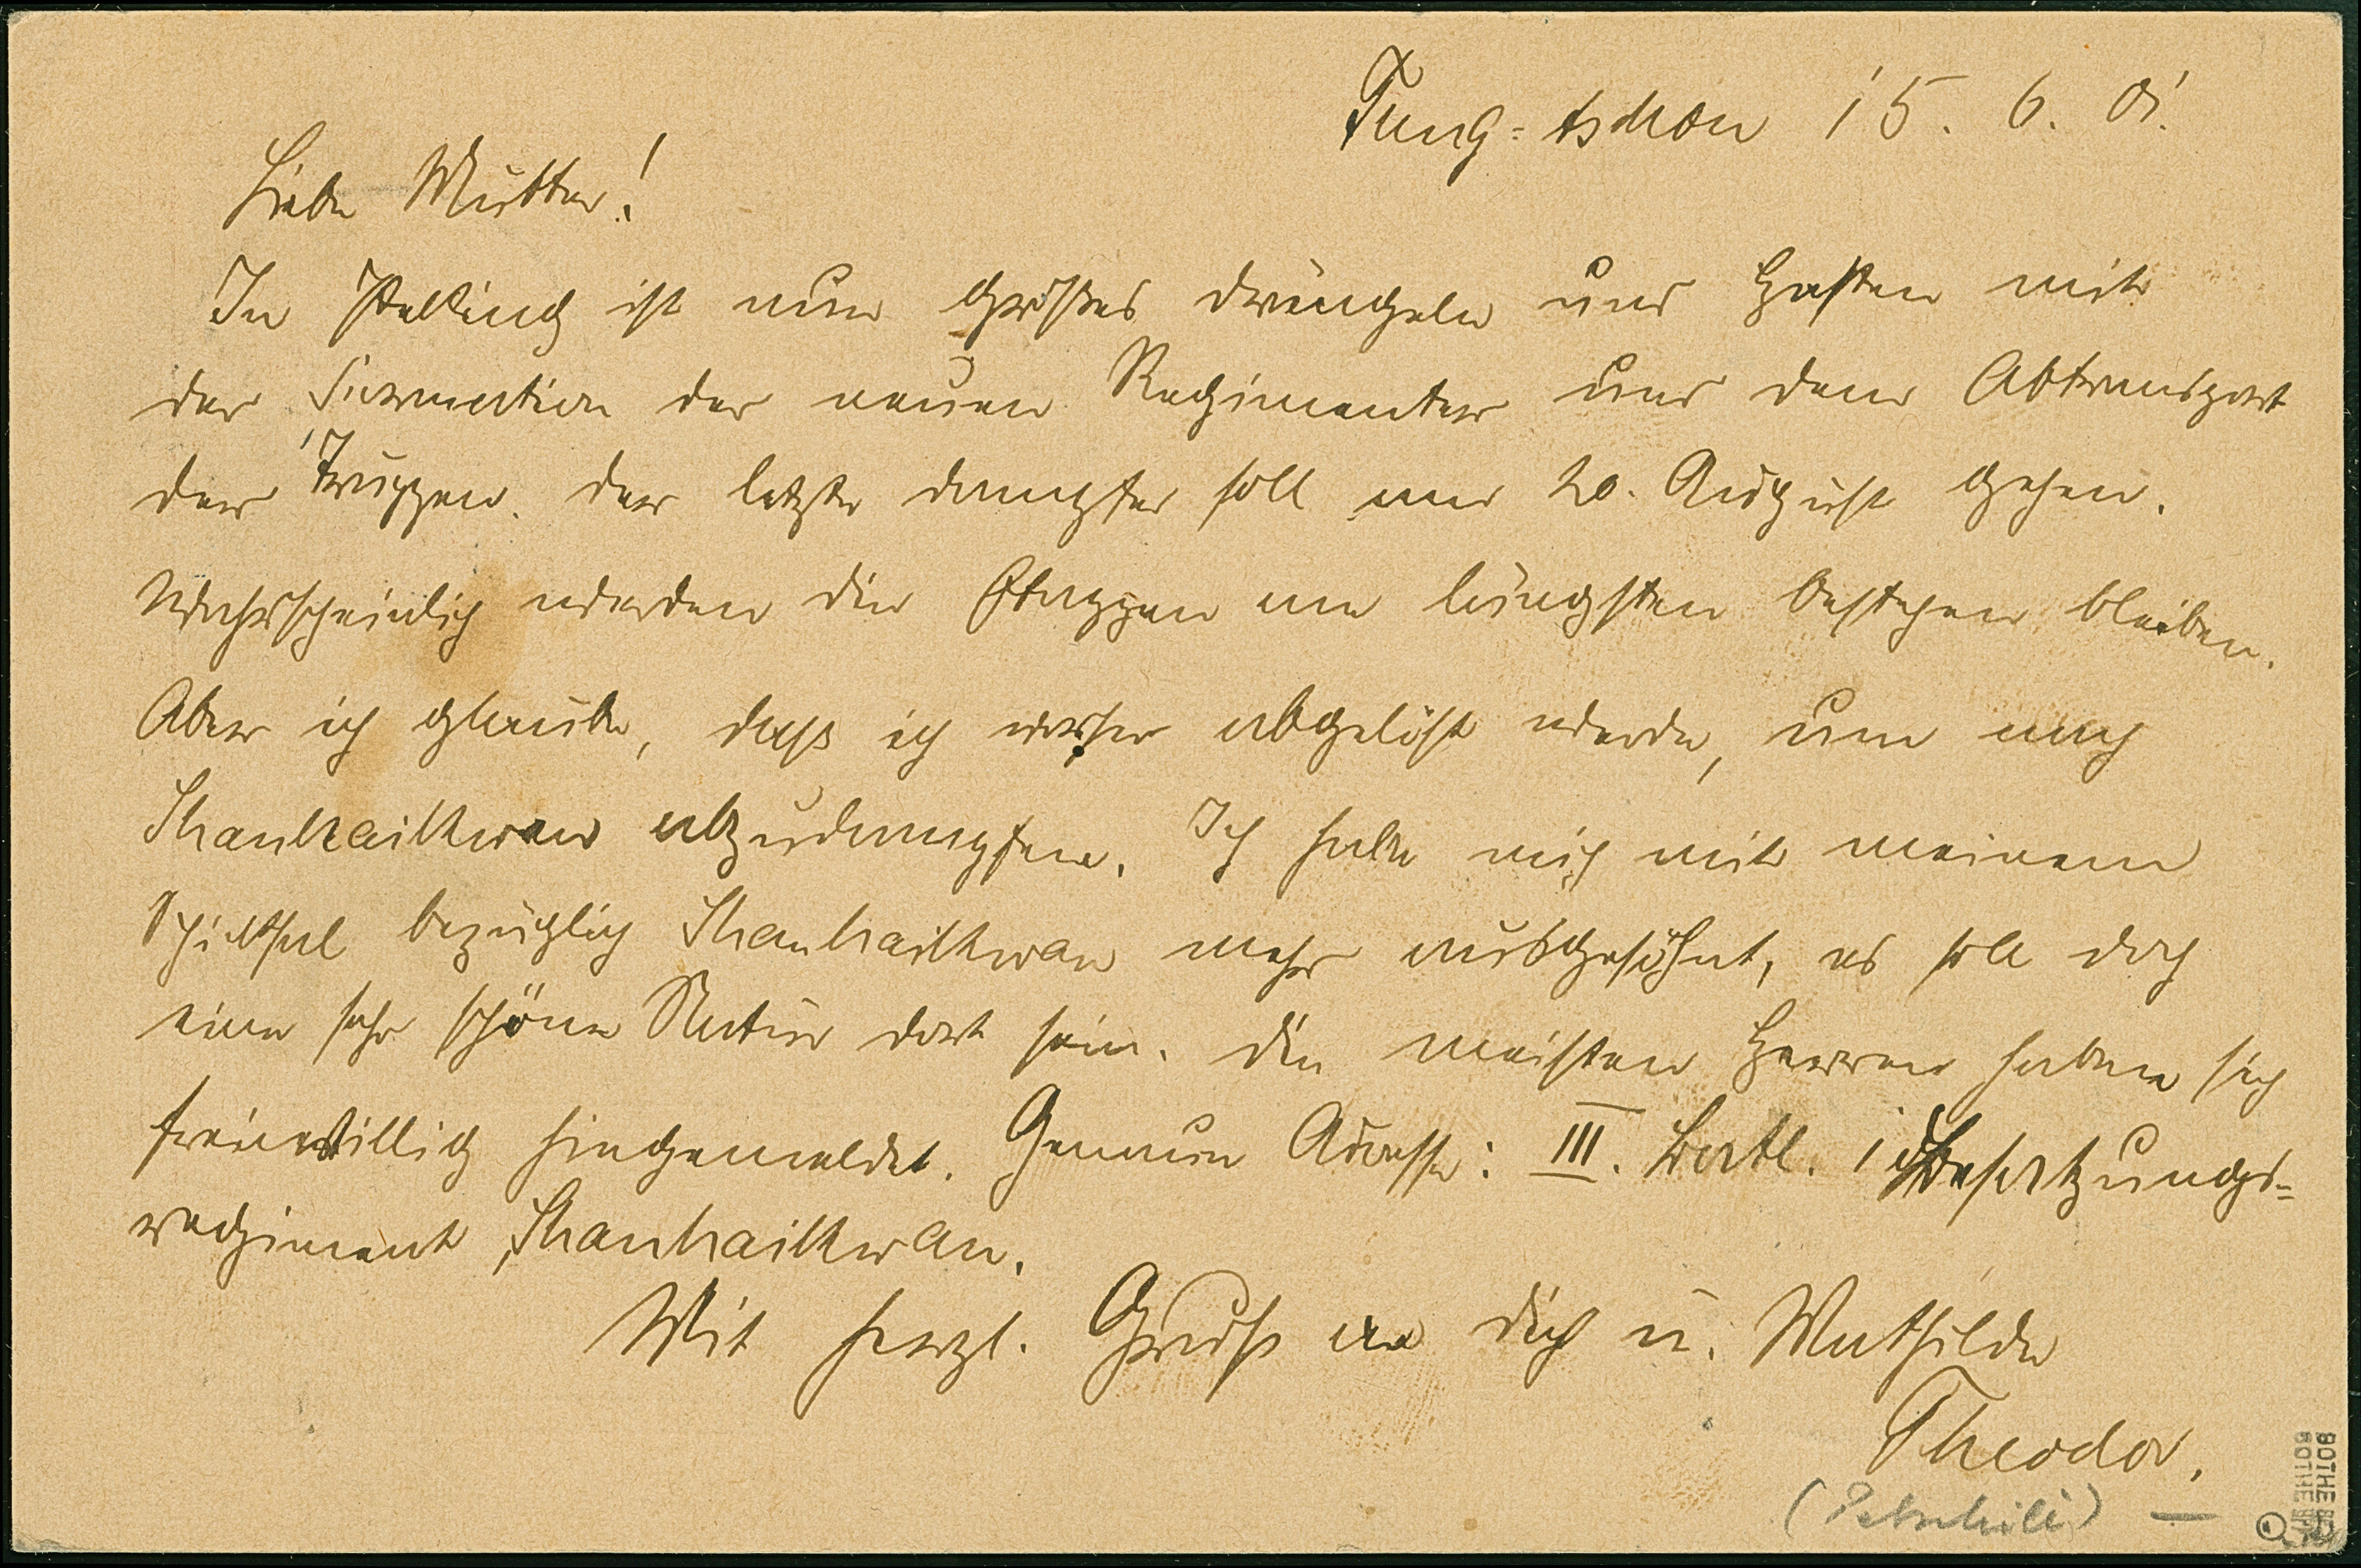 Tung-tschou 15. 6. 01.
Liebe Mutter!
In Peking ist nun großes Drängeln und Hasten mit
der Formation der neuen Regimenter und dem Abtransport
der Truppen. Der letzte Dampfer soll am 20. August gehen.
Wahrscheinlich werden die Etappen am längsten bestehen bleiben.
Aber ich glaube, daß ich vorher abgelöst werde, um nach
Shanhaikwan abzudampfen. Ich habe mich mit meinem
Schicksal bezüglich Shanhaikwan mehr ausgesöhnt, es soll doch
eine sehr schöne Natur dort sein. Die meisten Herren haben sich
freiwillig hingemeldet. Genaue Adresse: III. Batl. 1 Besatzungs-
regiment Shanhaikwan.
Mit herzl. Gruß an Dich u. Mathilde
Theodor.
(Petschili) —
BOTHE
BOTHE